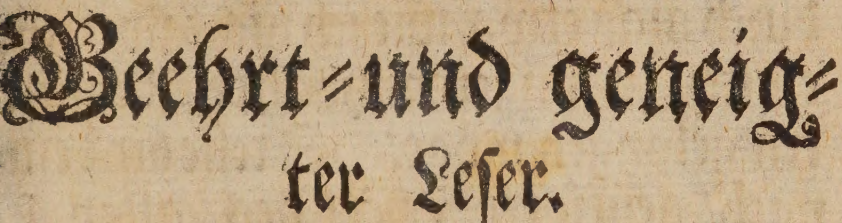 Geehrt-und geneig-
ter Leser.